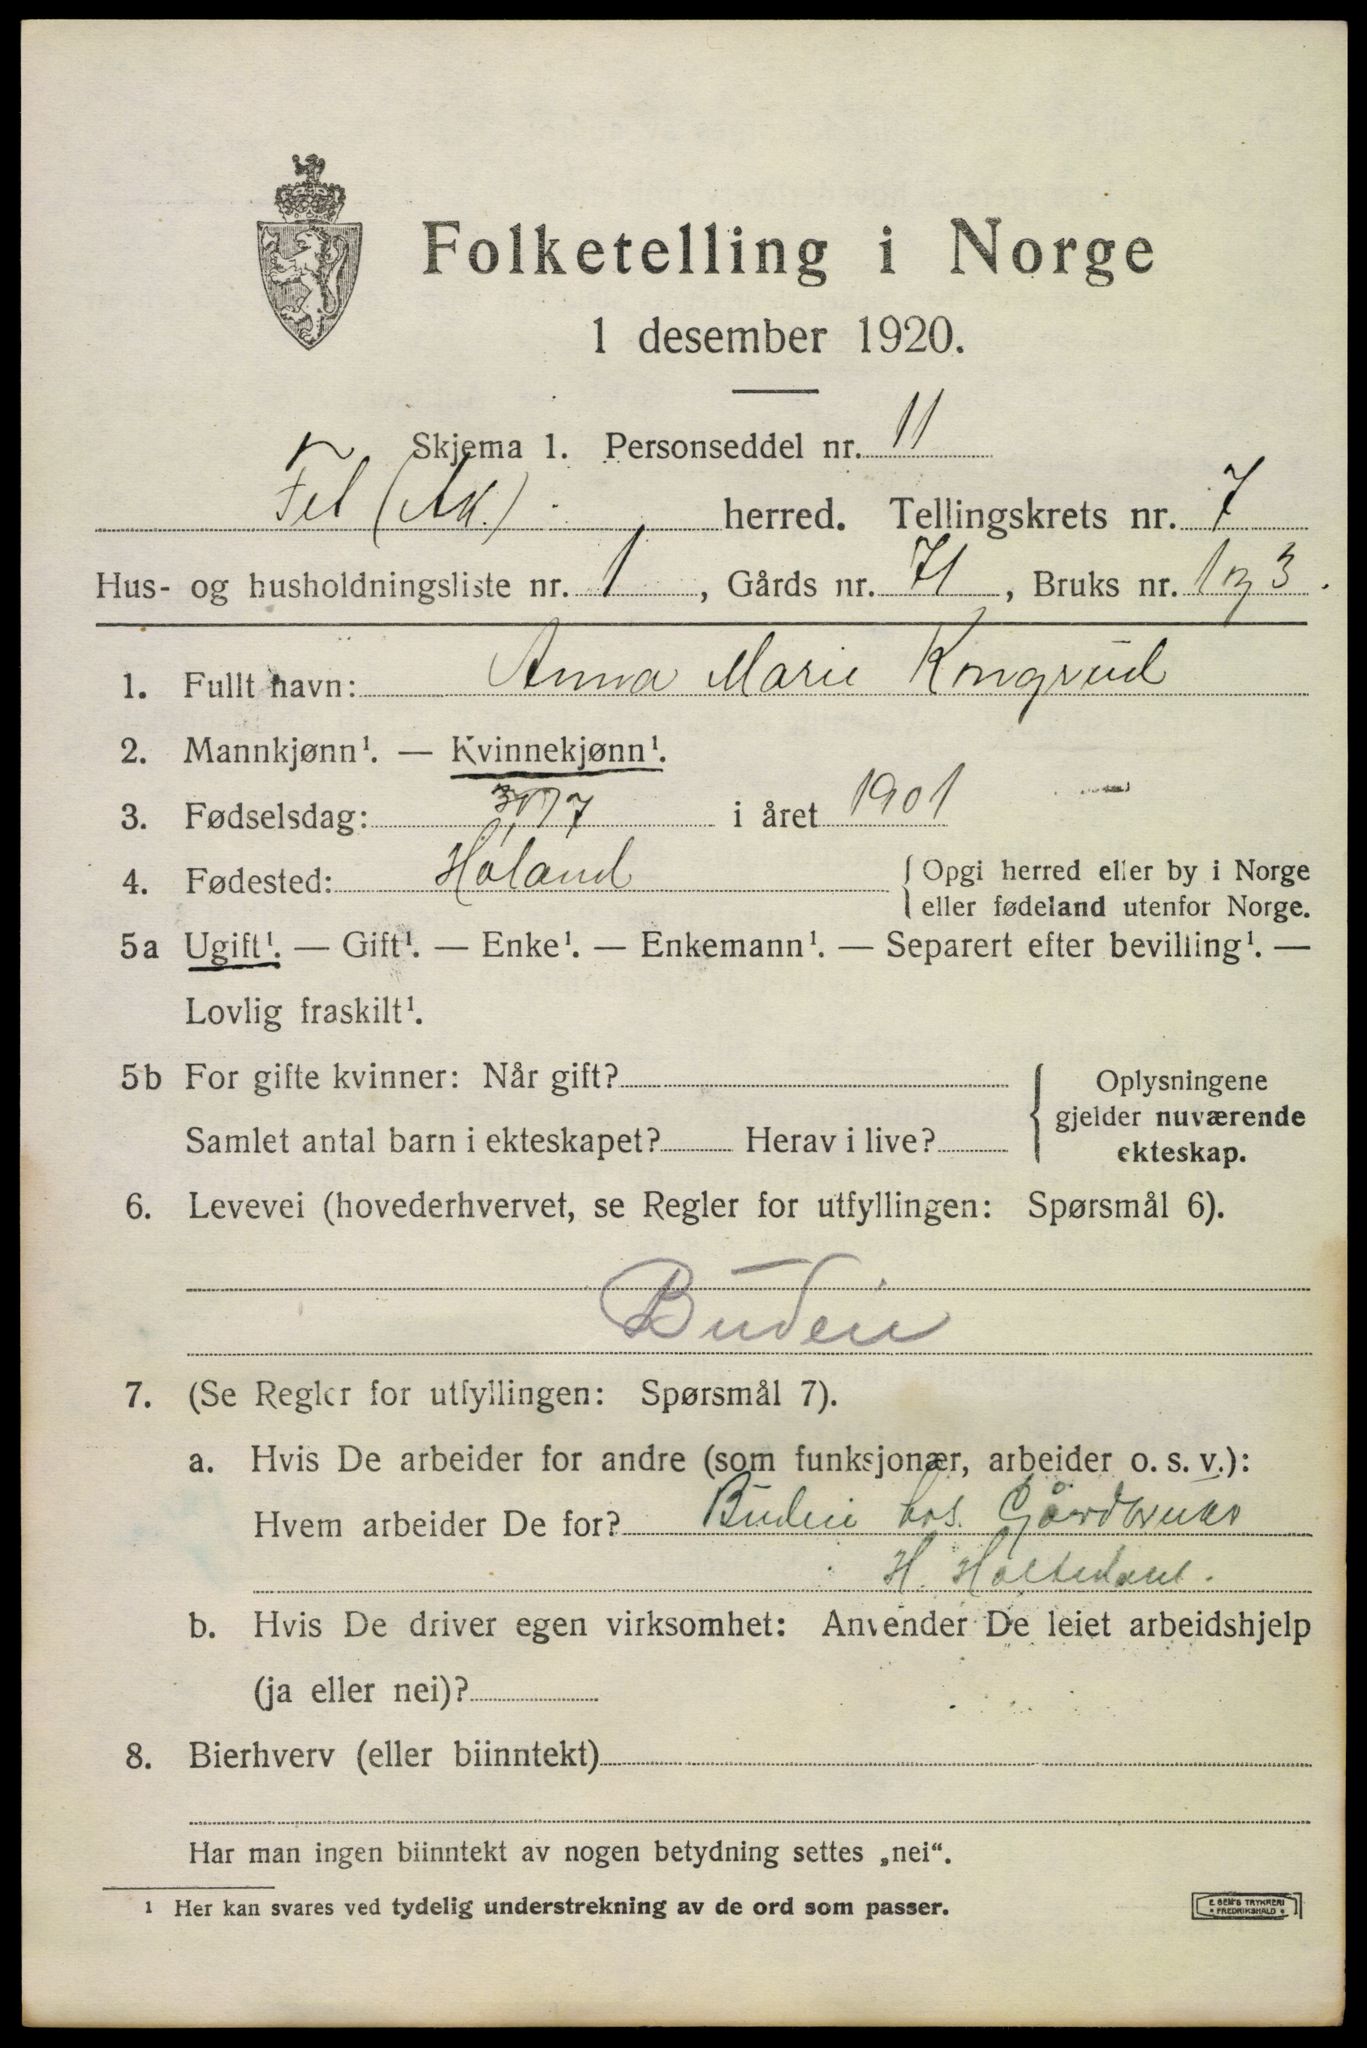 Folketelling i Norge
1 desember 1920.
Skjema 1. Personseddel nr. 11
Fet (Ak.) herred. Tellingskrets nr. 7
Hus- og husholdningsliste nr. 1, Gårds nr. 71, Bruks nr. 1 og 3.
1. Fullt navn: Anna Marie Kongsrud
2. Mannkjønn¹. — Kvinnekjønn¹.
3. Fødselsdag: 7 i året 1901
4. Fødested: Høland { Opgi herred eller by i Norge
eller fødeland utenfor Norge.
5a Ugift¹. — Gift¹. — Enke¹. — Enkemann¹. — Separert efter bevilling¹. —
Lovlig fraskilt¹.
5b For gifte kvinner: Når gift?
Samlet antal barn i ekteskapet? Herav i live?
{ Oplysningene
gjelder nuværende
ekteskap.
6. Levevei (hovederhvervet, se Regler for utfyllingen: Spørsmål 6).
Budeie
7. (Se Regler for utfyllingen: Spørsmål 7).
a. Hvis De arbeider for andre (som funksjonær, arbeider o. s. v.):
Hvem arbeider De for? Budeie hos Gårdbruker
H.
b. Hvis De driver egen virksomhet: Anvender De leiet arbeidshjelp
(ja eller nei)?
8. Bierhverv (eller biinntekt)
Har man ingen biinntekt av nogen betydning settes „nei“.
¹ Her kan svares ved tydelig understrekning av de ord som passer.
E. SEM'S TRYKKERI
• FREDRIKSHALD •